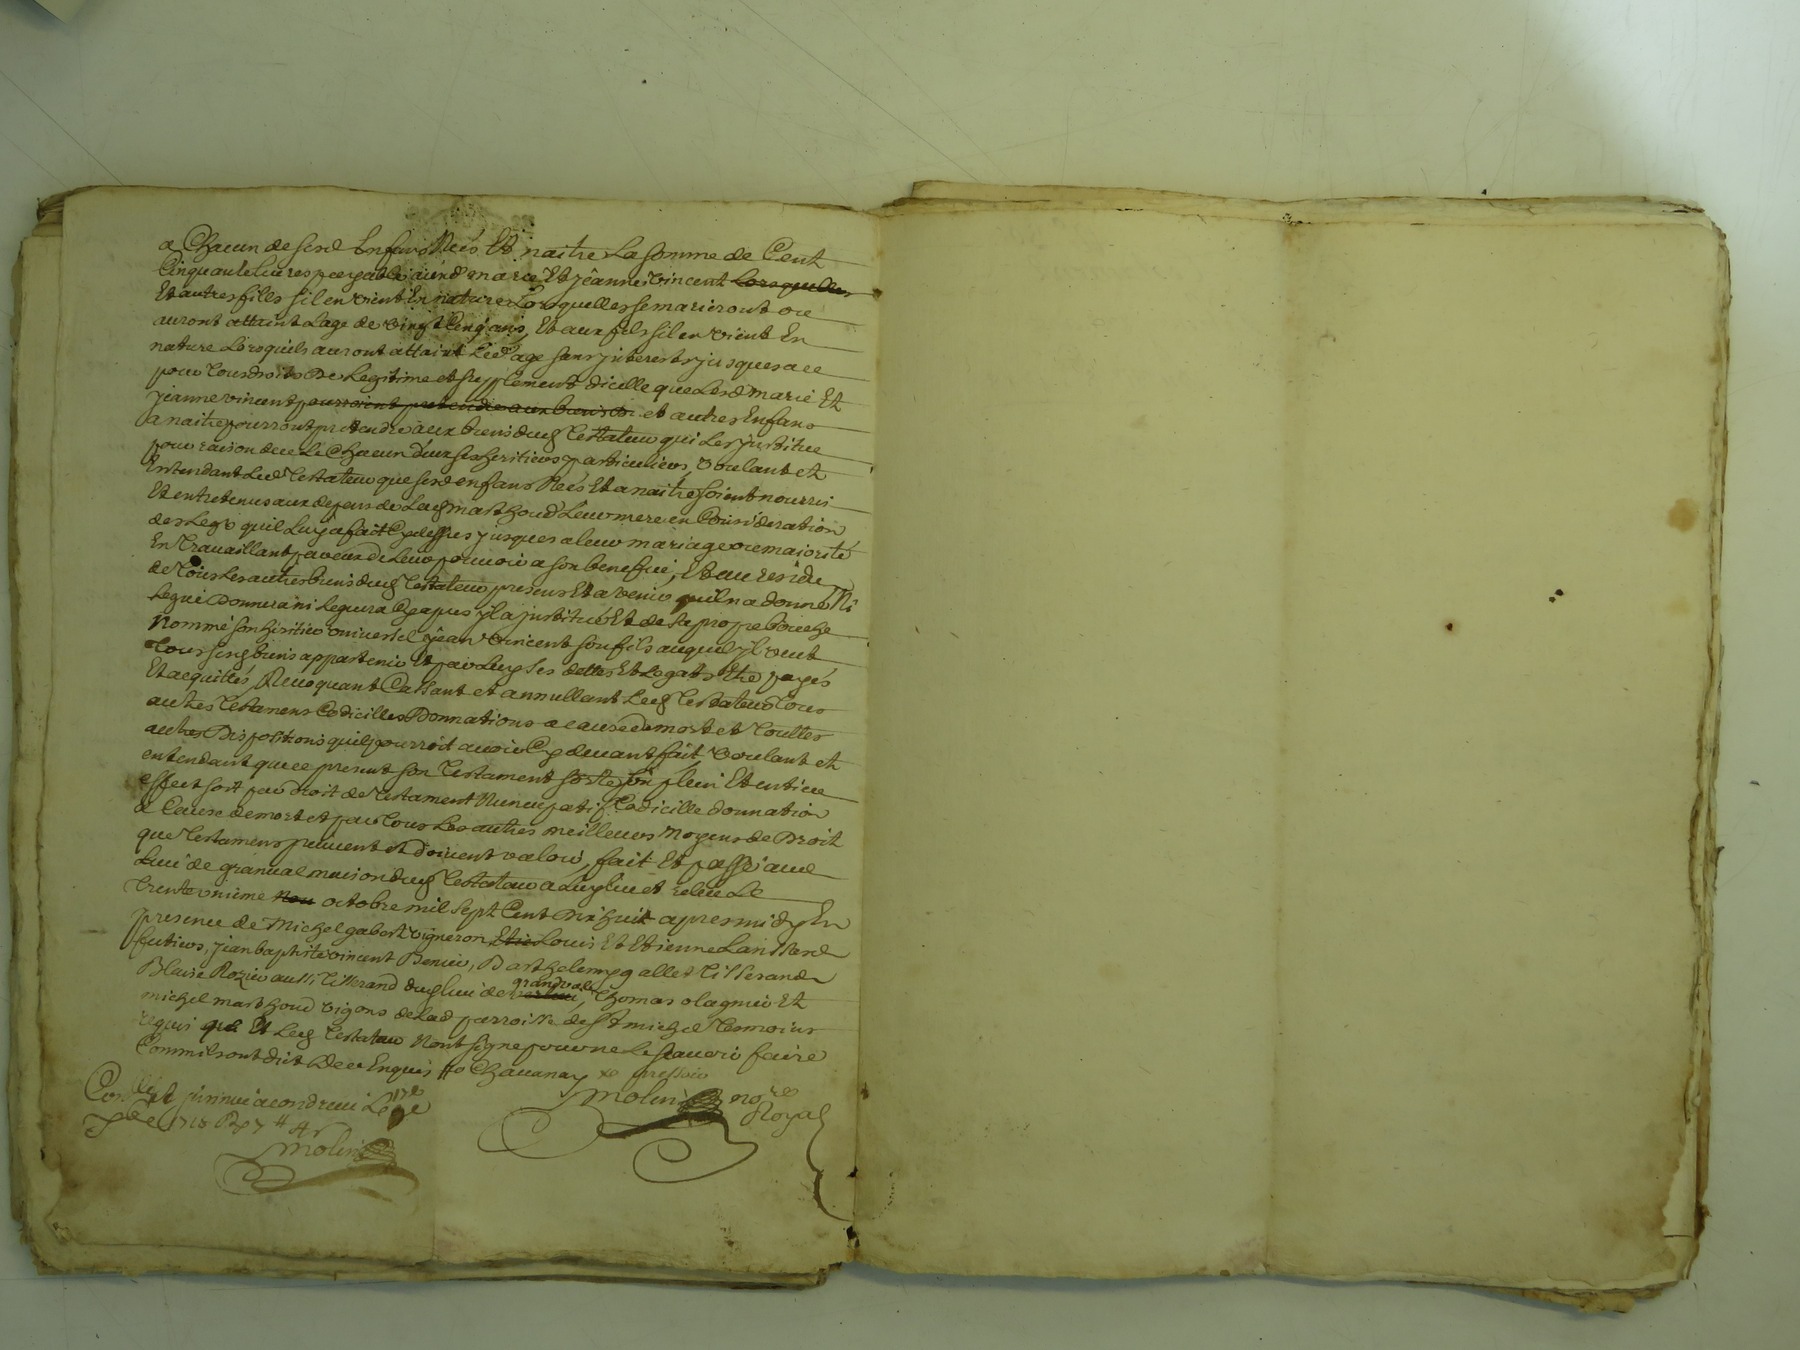 a Chacun de sesd Enfans Nés Et naitre La somme de Cent
Cinquante livres payable ausd marie Et jeanne vincent Lorsquelles
Et autres filles sil en vient En nature Lorsquelles se marieront ou
auront attaint Lage de vingt Cinq ans, Et aux fils sil en vient En
nature Lorsquils auront attaint Led age sans jnterests jusques a ce
pour tous droits De Legitime et supplement dicelle que Lesd marie Et
jeanne vincent pourroient pretendre aux biens et autres Enfans
a naitre pourront pretendre aux biens dud Testateur qui Les jnstitue
pour raison de ce Chacun d'eux ses heritiers particuliers, voulant et
Entendant Led Testateur que sesd enfans Nés Et a naitre soient nourris
Et entretenus aux depens de Lad marthoud Leur mere en Consideration
des Legs quil Luy a fait Cydessus jusques a leur mariage ou majorité
En travaillant par eux de Leur pouvoir a son beneffice, Et au residu
de Tous Les autres biens dud Testateur presens Et a venir quil n'a donné Ni
Legué Donnera ni Leguera Cy apres jl a jnstitué Et de sa propre bouche
Nommé son heritier universel jean vincent son fils auquel jl veut
Tous sesd biens appartenir Et par Luy ses dettes Et Legats Etre payés
Et acquittés, Revoquant Cassant et annullant Led Testateur Tous
autres Testamens Codicilles Donnations a cause de mort et Touttes
autres Dispositions quil pourroit avoir Cy devant fait, voulant et
entendant que ce present son Testament sorte son plein Et entier
effect soit par droit de Testament Nuncupatif Codicille donnation
a Cause de mort et par Tous Les autres meilleurs moyens de Droit
que Testamens peuvent et doivent valoir, fait Et passé aud
Lieu de granval maison dud Testateur a Luy Leu et releu Le
Trente unieme Nou octobre mil sept Cent Dix huit apres midy En
presence de Michel gabert vigneron Etie Louis Et Etienne
jean baptiste vincent Benier, Barthelemy gallet Tisserand
Blaise Rozier aussi Tisserand dud Lieu de grandval, Thomas olagnier Et
michel marthoud vigons de Lad parroisse de St michel Temoins
requis que Et Led Testateur Nont signé pour ne Le scavoir faire
Comm ils ont dit De ce Enquis Chavanay
Molin no.re
Royal
Conllé et jnsinué a condrieu Le 17e
9bre 1718
Molin